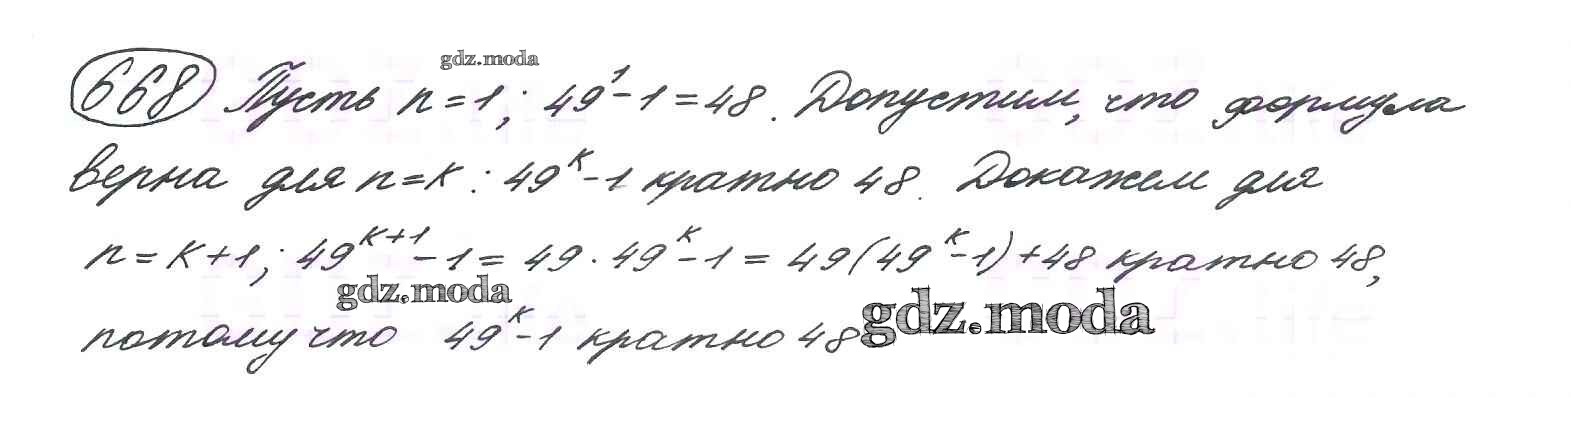 gdz.moda
668 Пусть n=1; 49¹-1=48. Допустим, что формула
верна для n=k: 49ᵏ-1 кратно 48. Докажем для
n=k+1; 49ᵏ⁺¹-1=49·49ᵏ-1=49(49ᵏ-1)+48 кратно 48,
gdz.moda
gdz.moda
потому что 49ᵏ-1 кратно 48